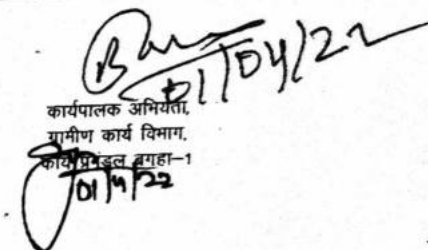 01/04/22
कार्यपालक अभियंता,
ग्रामीण कार्य विभाग,
कार्य प्रमंडल बगहा-1
01/4/22